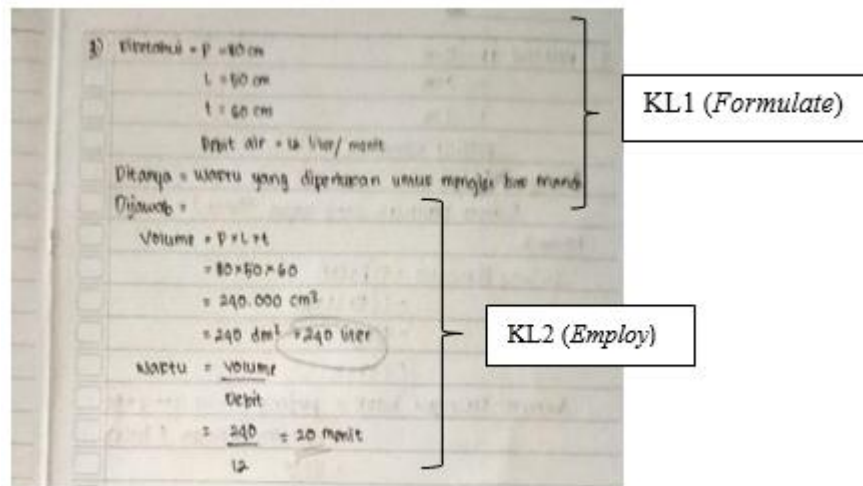 3) Diketahui = P = 80 cm
L = 50 cm
t = 60 cm
Debit air = 12 liter/ menit
Ditanya = Waktu yang diperlukan untuk mengisi bak mandi
Dijawab =
Volume = P × L × t
= 80 × 50 × 60
= 240.000 cm³
= 240 dm³ = 240 liter
Waktu = Volume
Debit
= 240 = 20 menit
12
KL1 (Formulate)
KL2 (Employ)